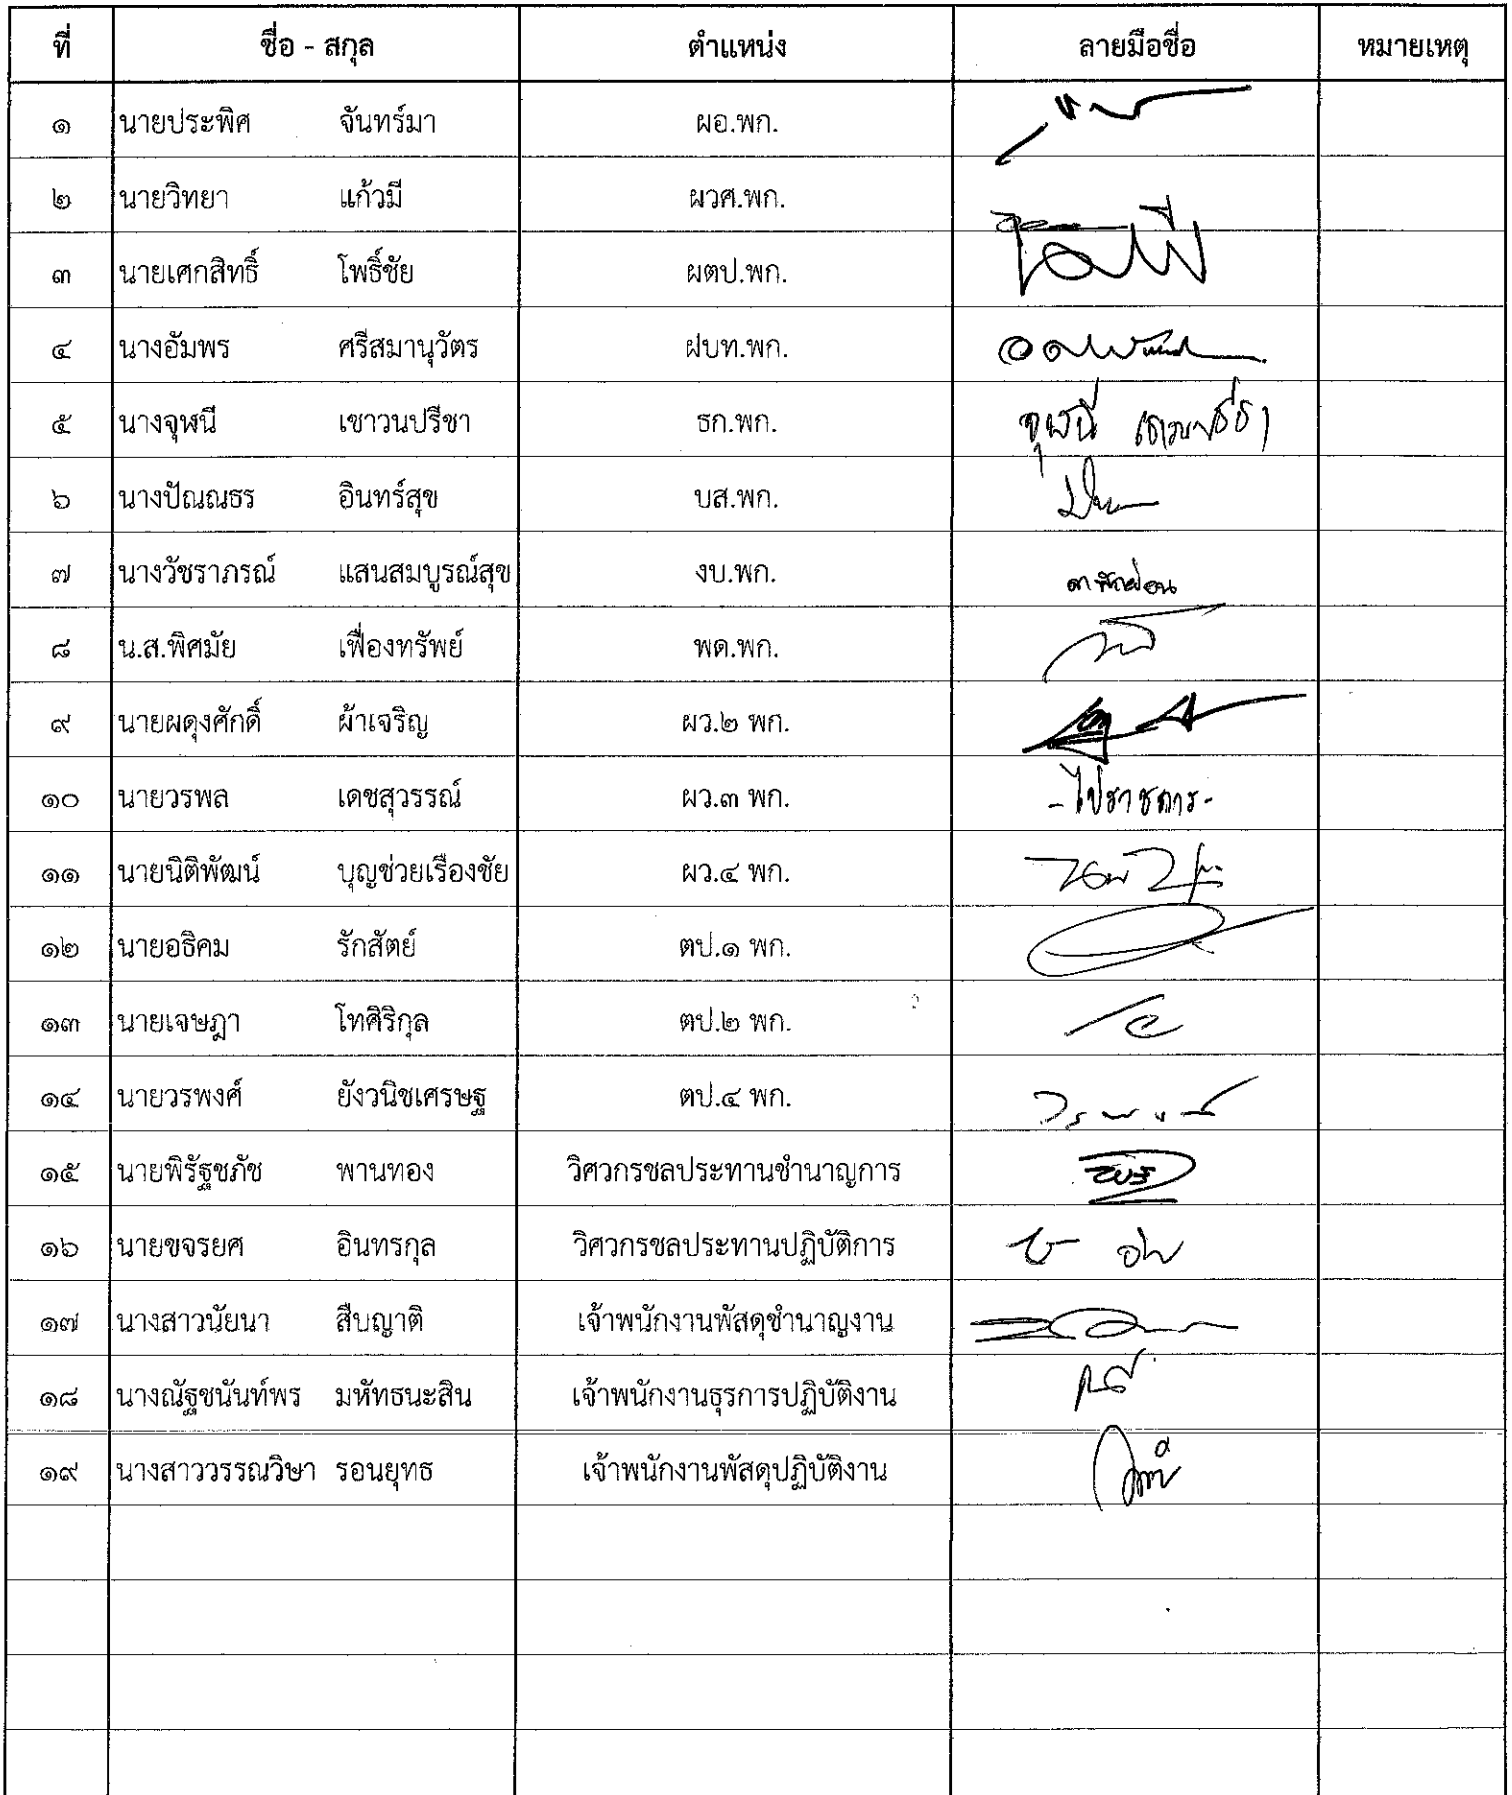 ที่ ชื่อ - สกุล ตำแหน่ง ลายมือชื่อ หมายเหตุ
๑ นายประพิศ จันทร์มา ผอ.พก.
๒ นายวิทยา แก้วมี ผวศ.พก.
๓ นายเศกสิทธิ์ โพธิ์ชัย ผตป.พก.
๔ นางอัมพร ศรีสมานุวัตร ฝบท.พก.
๕ นางจุฬนี เชาวนปรีชา ธก.พก. จุฬนี เชาวนปรีชา
๖ นางปัณณธร อินทร์สุข บส.พก.
๗ นางวัชราภรณ์ แสนสมบูรณ์สุข งบ.พก. ลาพักผ่อน
๘ น.ส.พิศมัย เฟื่องทรัพย์ พด.พก.
๙ นายผดุงศักดิ์ ผ้าเจริญ ผว.๒ พก.
๑๐ นายวรพล เดชสุวรรณ์ ผว.๓ พก. -ไปราชการ-
๑๑ นายนิติพัฒน์ บุญช่วยเรืองชัย ผว.๔ พก.
๑๒ นายอธิคม รักสัตย์ ตป.๑ พก.
๑๓ นายเจษฎา โทศิริกุล ตป.๒ พก.
๑๔ นายวรพงศ์ ยังวนิชเศรษฐ ตป.๔ พก.
๑๕ นายพิรัฐชภัช พานทอง วิศวกรชลประทานชำนาญการ
๑๖ นายขจรยศ อินทรกุล วิศวกรชลประทานปฏิบัติการ
๑๗ นางสาวนัยนา สืบญาติ เจ้าพนักงานพัสดุชำนาญงาน
๑๘ นางณัฐชนันท์พร มหัทธนะสิน เจ้าพนักงานธุรการปฏิบัติงาน
๑๙ นางสาววรรณวิษา รอนยุทธ เจ้าพนักงานพัสดุปฏิบัติงาน